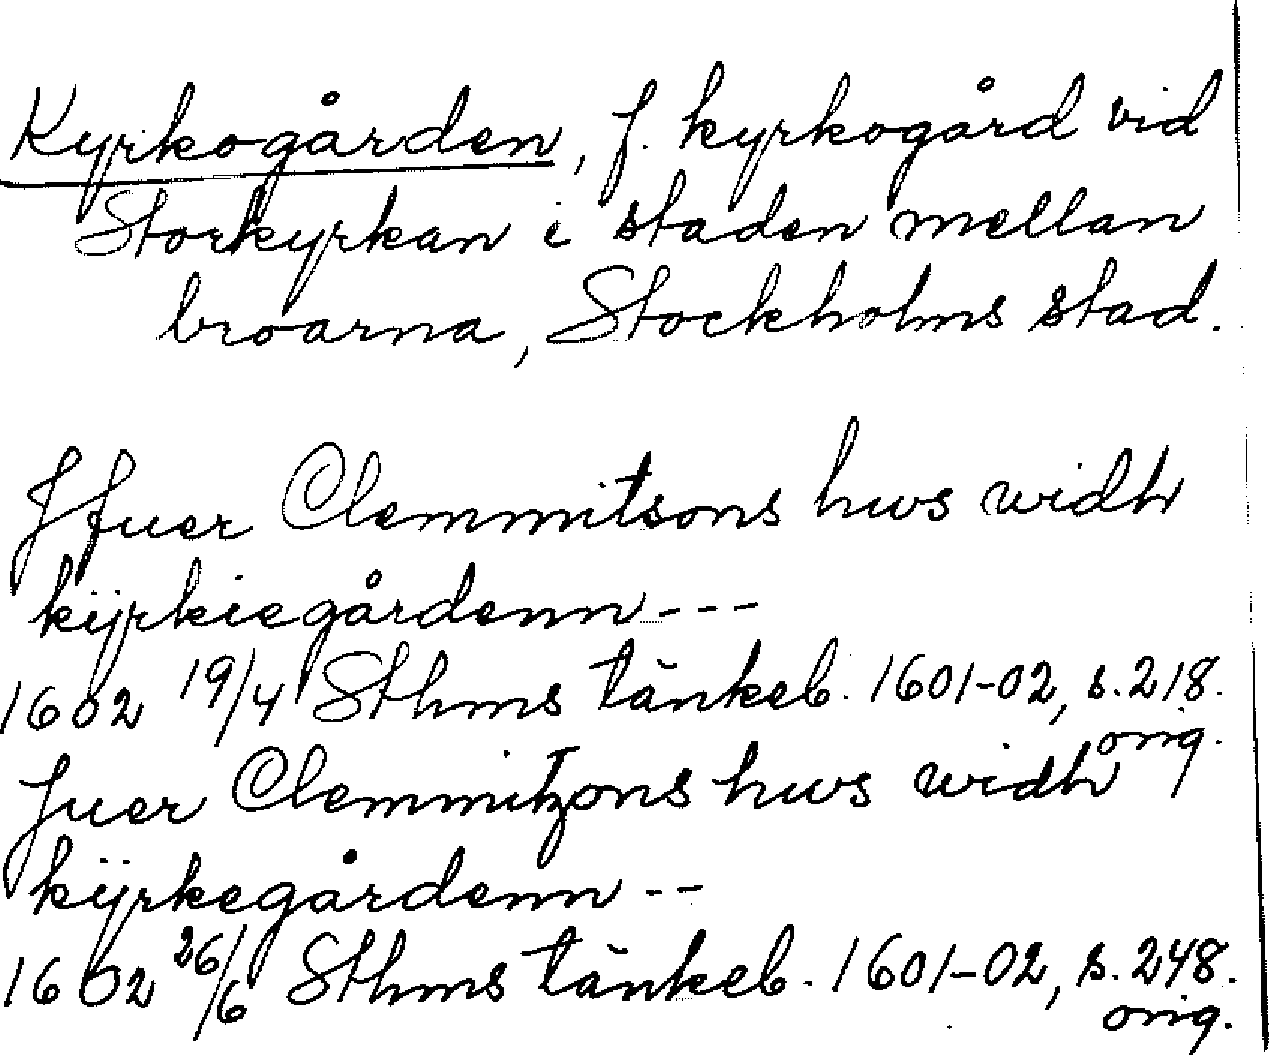 Kyrkogården, f. kyrkogård vid
Storkyrkan i staden mellan
broarna, Stockholms stad.
Jfuer Clemmitsons hws widh
kÿrkiegårdenn---
1602 19/4 Sthms tänkeb. 1601-02, s. 218.
orig.
Juer Clemmitzons hws widh
kÿrkegårdenn--
1602 26/6 Sthms tänkeb. 1601-02, s. 248.
orig.